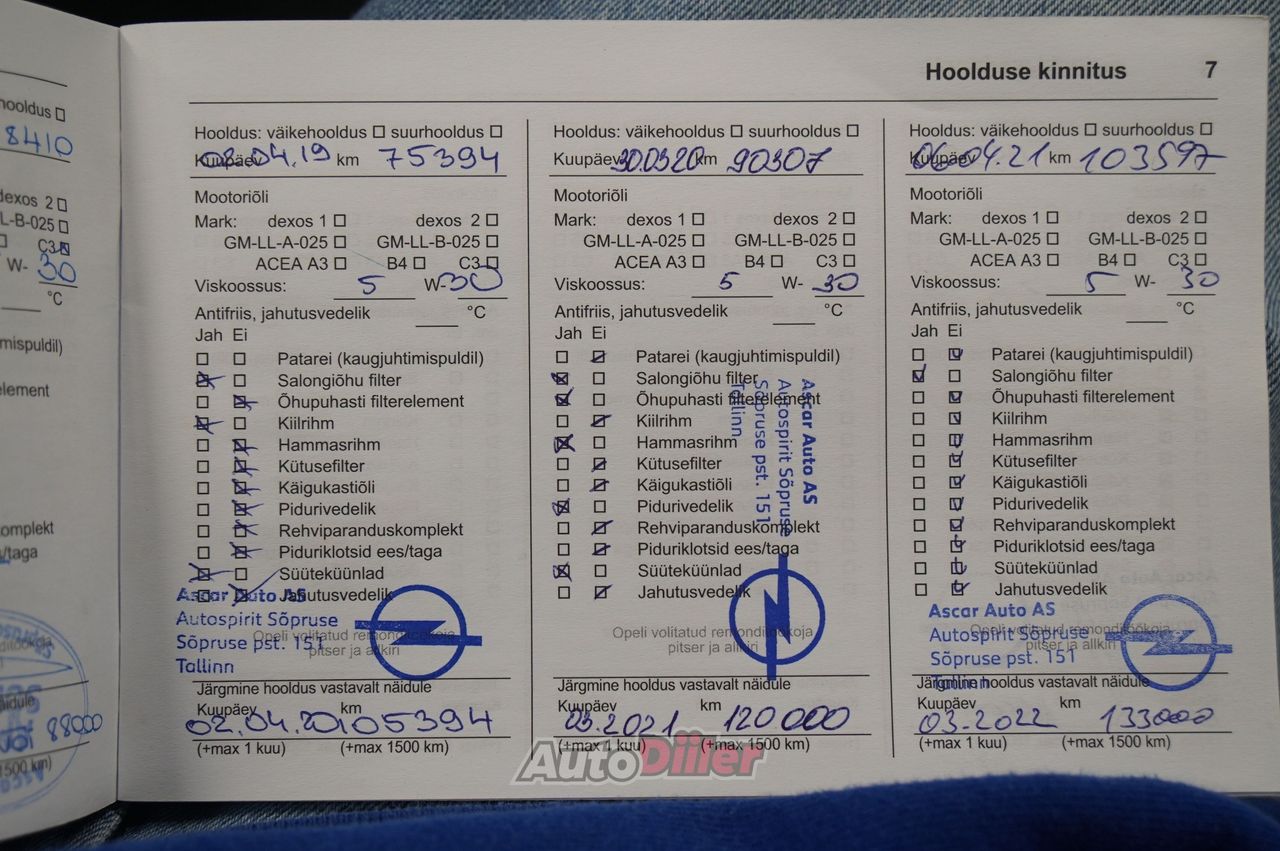 hooldus
8410
dexos 2
L-B-025
C3
W- 30
°C
mispuldil)
element
omplekt
s/taga
88000
500 km)
Hoolduse kinnitus 7
Hooldus: väikehooldus suurhooldus
Kuupäev 02.04.19 km 75394
Mootoriõli
Mark: dexos 1 dexos 2
GM-LL-A-025 GM-LL-B-025
ACEA A3 B4 C3
Viskoossus: 5 W- 30
Antifriis, jahutusvedelik °C
Jah Ei
Patarei (kaugjuhtimispuldil)
Salongiõhu filter
Õhupuhasti filterelement
Kiilrihm
Hammasrihm
Kütusefilter
Käigukastiõli
Pidurivedelik
Rehviparanduskomplekt
Piduriklotsid ees/taga
Süüteküünlad
Jahutusvedelik
Ascar Auto AS
Autospirit Sõpruse
Sõpruse pst. 151
Tallinn
Opeli volitatud remonditöökoja
pitser ja allkiri
Järgmine hooldus vastavalt näidule
Kuupäev km
02.04.20 105394
(+max 1 kuu) (+max 1500 km)
Hooldus: väikehooldus suurhooldus
Kuupäev 30.03.20 km 90307
Mootoriõli
Mark: dexos 1 dexos 2
GM-LL-A-025 GM-LL-B-025
ACEA A3 B4 C3
Viskoossus: 5 W- 30
Antifriis, jahutusvedelik °C
Jah Ei
Patarei (kaugjuhtimispuldil)
Salongiõhu filter
Õhupuhasti filterelement
Kiilrihm
Hammasrihm
Kütusefilter
Käigukastiõli
Pidurivedelik
Rehviparanduskomplekt
Piduriklotsid ees/taga
Süüteküünlad
Jahutusvedelik
Ascar Auto AS
Autospirit Sõpruse
Sõpruse pst. 151
Tallinn
Opeli volitatud remonditöökoja
pitser ja allkiri
Järgmine hooldus vastavalt näidule
Kuupäev km
03.2021 120000
(+max 1 kuu) (+max 1500 km)
Hooldus: väikehooldus suurhooldus
Kuupäev 06.04.21 km 103597
Mootoriõli
Mark: dexos 1 dexos 2
GM-LL-A-025 GM-LL-B-025
ACEA A3 B4 C3
Viskoossus: 5 W- 30
Antifriis, jahutusvedelik °C
Jah Ei
Patarei (kaugjuhtimispuldil)
Salongiõhu filter
Õhupuhasti filterelement
Kiilrihm
Hammasrihm
Kütusefilter
Käigukastiõli
Pidurivedelik
Rehviparanduskomplekt
Piduriklotsid ees/taga
Süüteküünlad
Jahutusvedelik
Ascar Auto AS
Autospirit Sõpruse
Sõpruse pst. 151
Tallinn
Opeli volitatud remonditöökoja
pitser ja allkiri
Järgmine hooldus vastavalt näidule
Kuupäev km
03.2022 133000
(+max 1 kuu) (+max 1500 km)
AutoDiiler